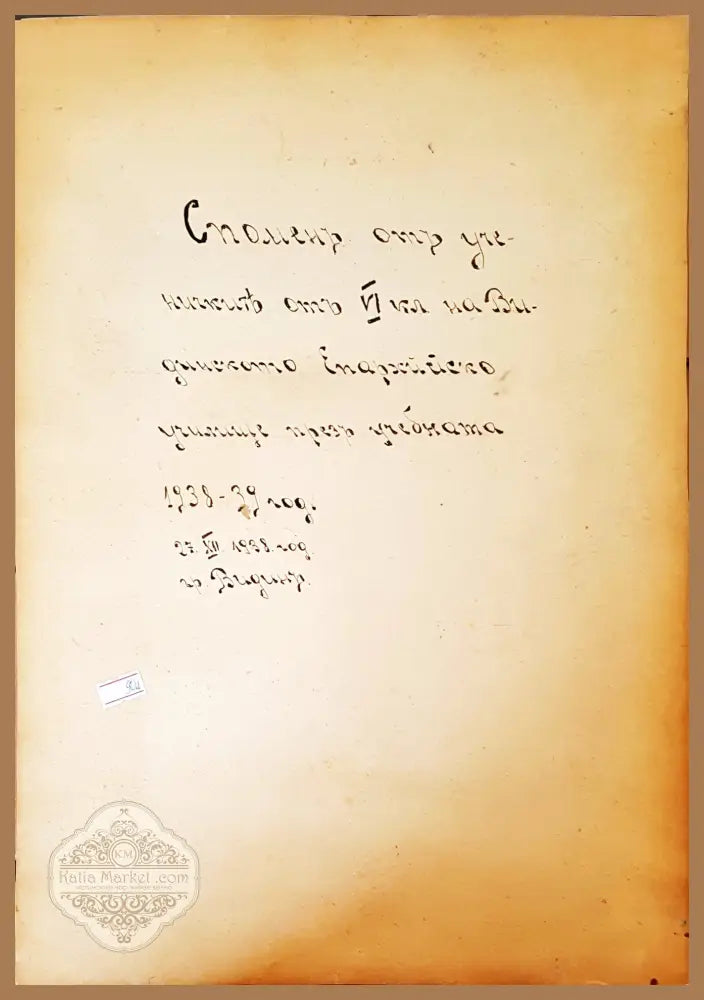 Споменъ отъ уче-
ничкитѣ отъ VI кл. на Ви-
динското Епархийско
училище презъ учебната
1938-39 год.
27. XII 1938. год.
гр. Видинъ.
KM
Katia Market .com